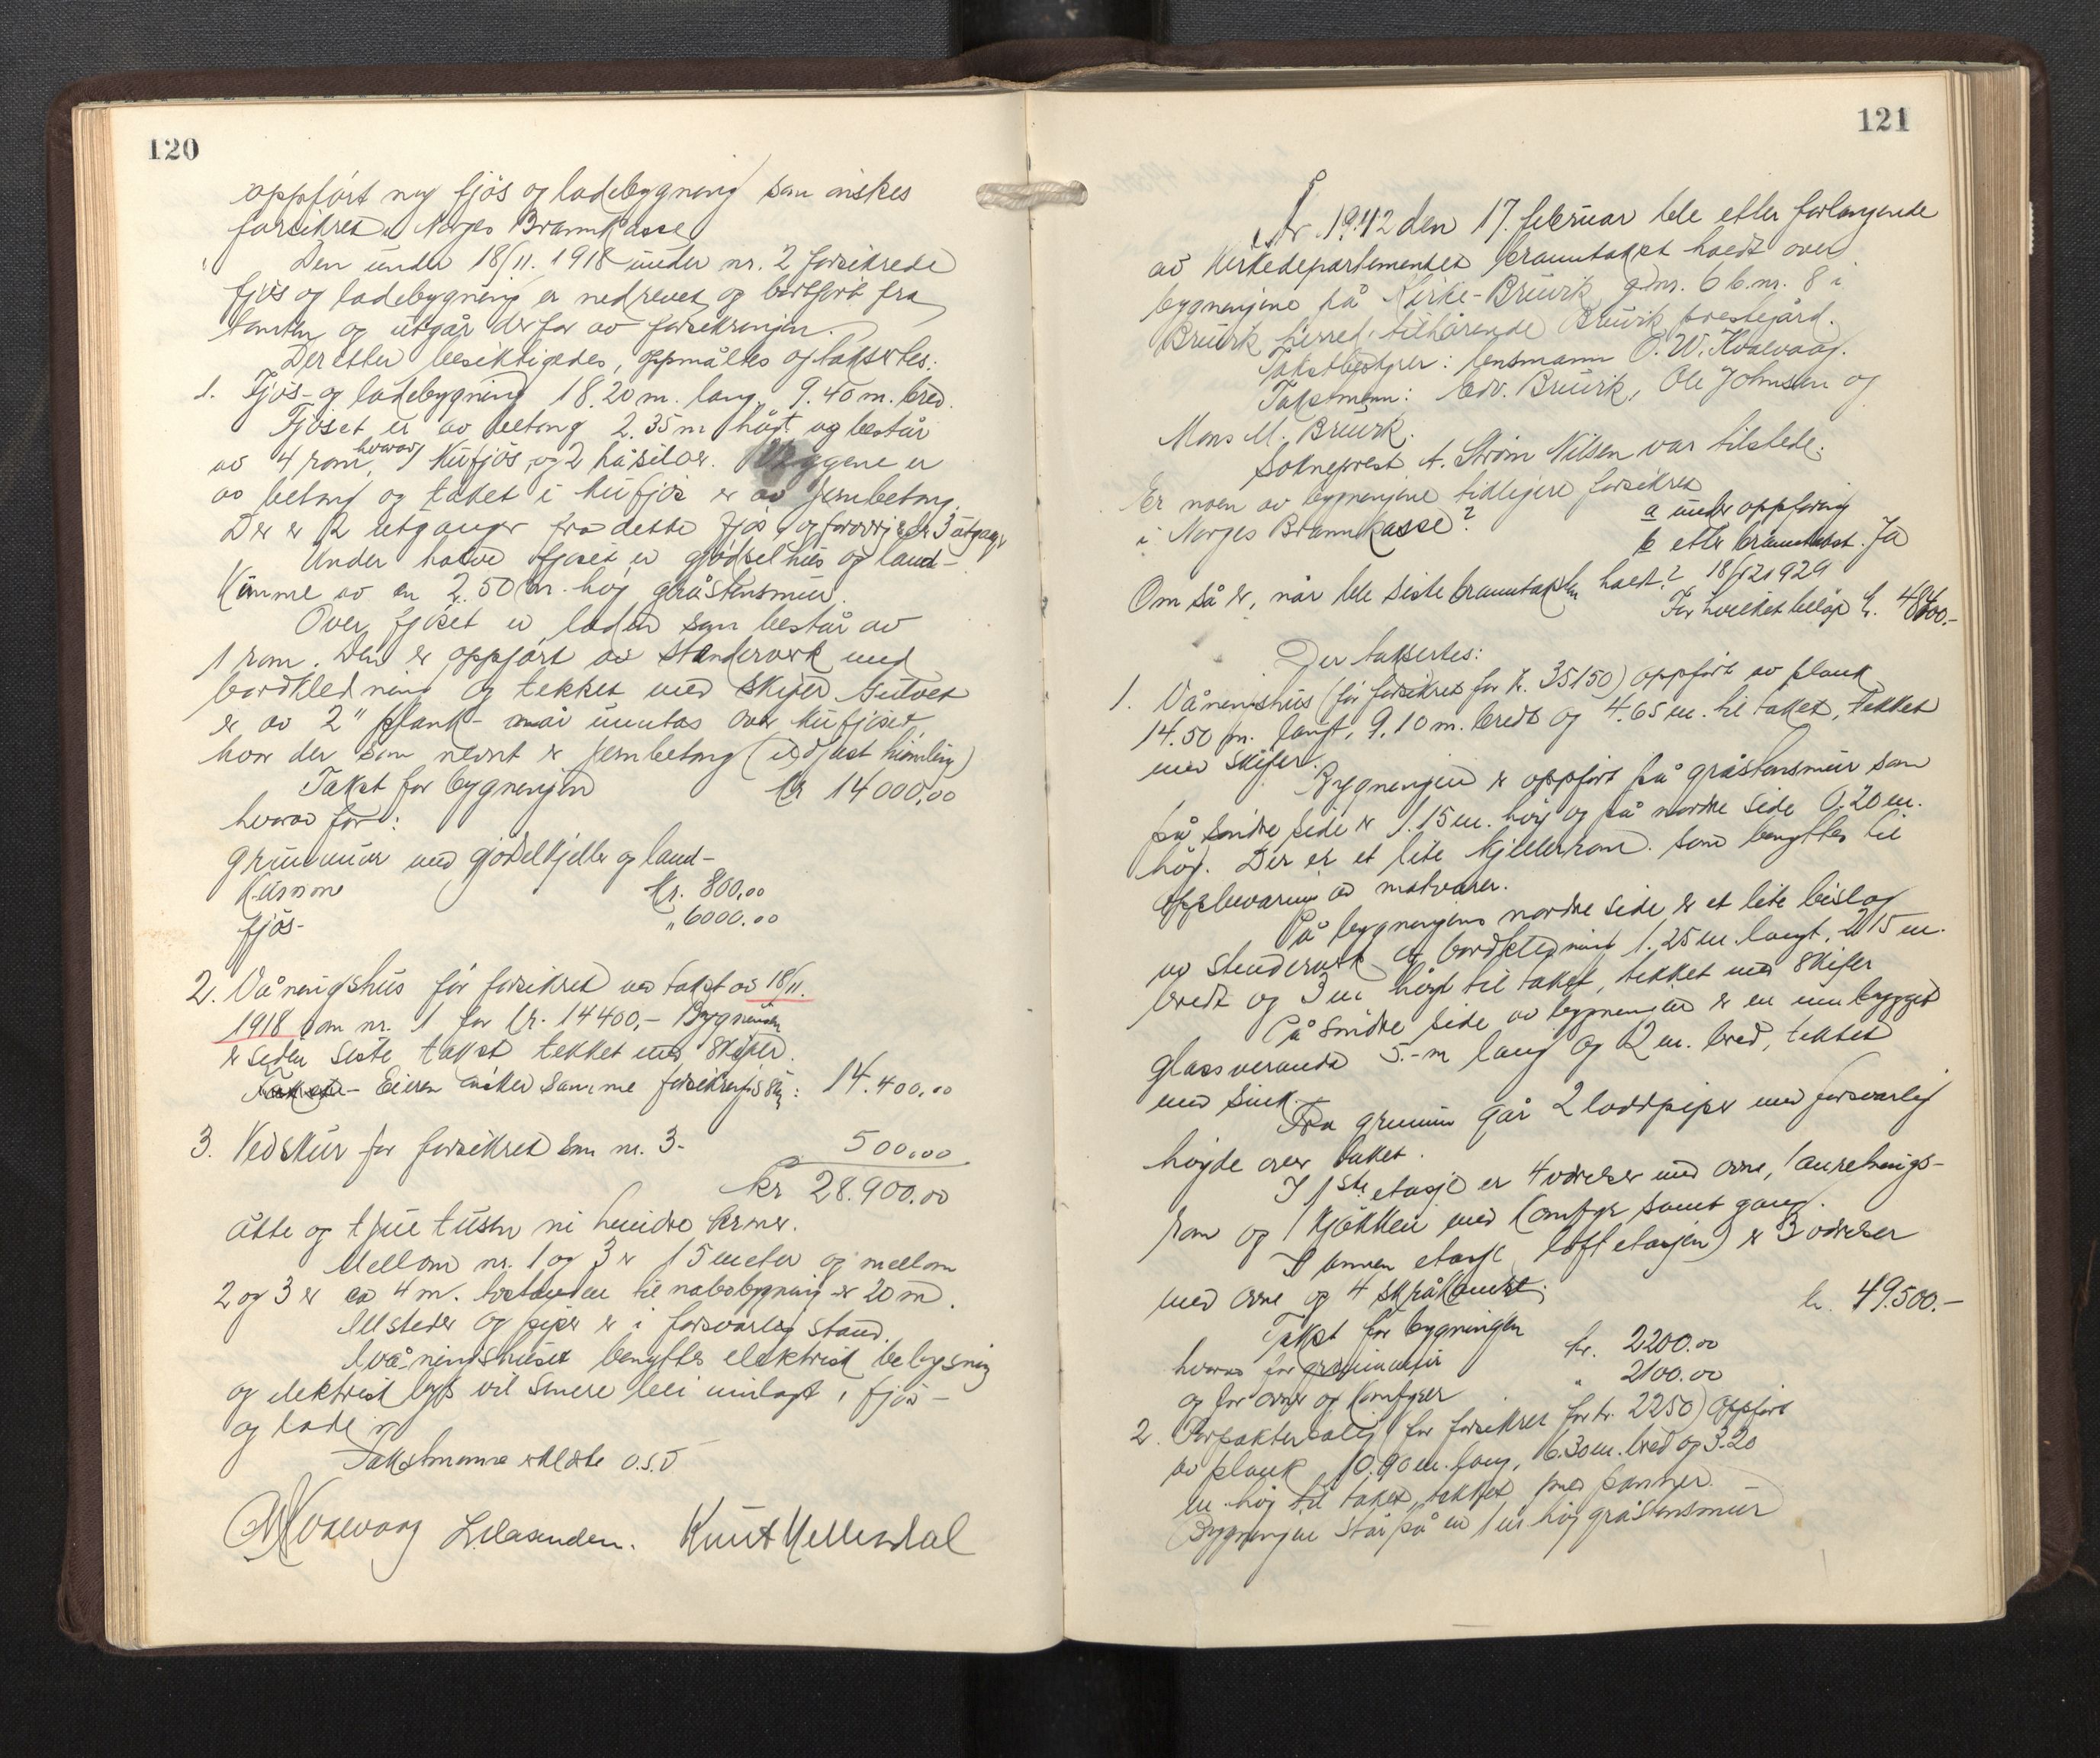 120
oppført ny fjøs og ladebygning som ønskes
forsikret i Norges Brannkasse
Den under 18/11. 1918 under nr. 2 forsikrede
fjøs og ladebygning er nedrevet og bortført fra
tomten og utgår derfor av forsikringen.
Deretter besiktigedes, oppmåltes og taksertes:
1. Fjøs- og ladebygning 18.20 m. lang, 9.40 m. bred.
Fjøset er av betong 2.35 m høgt og består
av 4 rom, hvorav 1 kufjøs, og 2 håsiloer. Veggene er
av betong og taket i kufjøs er av jernbetong.
Der er 2 utganger fra dette fjøs, og forøvrig er der 3 utganger
Under halve fjøset er gjødselhus og land-
kumme av en 2.50 m. høg gråstensmur.
Over fjøset er laden som består av
1 rom. Den er oppført av stenderverk med
bordkledning og tekket med skifer. Gulvet
er av 2" plank - når unntas over kufjøset,
hvor der som nevnt er jernbetong
Takst for bygningen kr 14000,00
hvorav for:
grunnmur med gjødselkjeller og land-
kumme kr. 800,00
fjøs- " 6000.00
2. Våningshus før forsikret ved takst av 18/11.
1918 som nr. 1 for kr. 14400,- Bygningen
er siden siste takst tekket med skifer.
- Eieren ønsker samme forsikringssum: 14.400,00
3. Vedskur før forsikret som nr. 3- 500,00
kr 28.900,00
åtte og tjue tusen ni hundre kroner.
Mellom nr. 1 og 3 er 15 meter og mellom
2 og 3 er ca 4 m. Avstanden til nabobygning er 20 m.
Ildsteder og piper er i forsvarlig stand.
I våningshuset benyttes elektrisk belysning
og elektrisk lys vil senere bli innlagt i fjøs-
og lade
Takstmennene erklærte o.s.v
O W Kvalvaag Knut Mellesdal
121
År 1942 den 17. februar ble etter forlangende
av Kirkedepartementet branntakst holdt over
bygningene på Kirke-Bruvik gdnr. 6 b.nr. 8 i
Bruvik herred, tilhørende Bruvik prestegård.
Takstbestyrer: lensmann O. W. Kvalvaag.
Takstmenn: Edv. Bruvik, Ole Johnsen og
Mons M. Bruvik.
Sokneprest A. Strøm Nilsen var tilstede.
Er noen av bygningene tidligere forsikret
i Norges Brannkasse?
a under oppføring
b etter branntakst. Ja
Om så er, når ble siste branntakst holdt? 18/12 1929
For hvilket beløp kr. 48400.-
Der taksertes:
1. Våningshus (før forsikret for kr. 35150) oppført av plank
14.50 m. langt, 9.10 m. bredt og 4.65 m. til taket, tekket
med skifer.
Bygningen er oppført på gråstensmur som
på søndre side er 1.15 m. høg og på nordre side 0.20 m.
høg. Der er et lite kjellerrom som benyttes til
oppbevaring av matvarer.
På bygningens nordre side er et lite bislag
av stenderverk og bordkledning 1.25 m. langt, 2.15 m.
bredt og 3 m høgt til taket, tekket med skifer
På søndre side av bygningen er en innbygget
glassveranda 5.- m lang og 2 m. bred, tekket
med sink.
Fra grunnen går 2 loddpiper med forsvarlig
høgde over taket.
I 1ste etasje er 4 værelser med ovne, 1 anretnings-
rom og 1 kjøkken med komfyr samt gang.
I annen etasje (loftetasjen) er 3 værelser
med ovne og 4 skråkammer.
Takst for bygningen kr. 49.500.-
hvorav for grunnmur kr. 2200.00
og for ovner og komfyrer " 2100.00
2. Forpakterbolig (før forsikret for kr. 2250) oppført
av plank 10.90 m. lang, 6.30 m. bred og 3.20
m. høg til taket, tekket med panner.
Bygningen står på en 1 m. høg gråstensmur